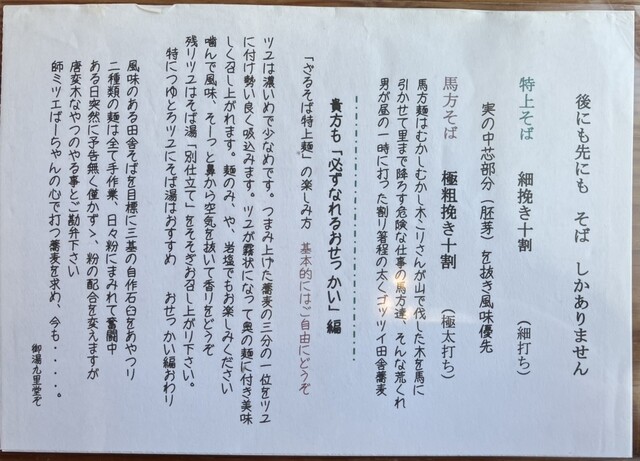 後にも先にも そば しかありません
特上そば 細挽き十割 (細打ち)
実の中芯部分(胚芽)を抜き風味優先
馬方そば 極粗挽き十割 (極太打ち)
馬方麺はむかしむかし木こりさんが山で伐した木を馬に
引かせて里まで降ろす危険な仕事の馬方達、そんな荒くれ
男が昼の一時に打った割り箸程の太くゴッツイ田舎蕎麦
貴方も「必ずなれるおせっかい」編
「ざるそば特上麺」の楽しみ方 基本的にはご自由にどうぞ
ツユは濃いめで少なめです。つまみ上げた蕎麦の三分の一位をツユ
に付け勢い良く吸込みます。ツユが霧状になって奥の麺に付き美味
しく召し上がれます。麺のみ、や、岩塩でもお楽しみください
噛んで風味、そーっと鼻から空気を抜いて香りをどうぞ
残りツユはそば湯「別仕立て」をそそぎお召し上がり下さい。
特につゆとろツユにそば湯はおすすめ おせっかい編おわり
風味のある田舎そばを目標に三基の自作石臼をあやつり
二種類の麺は全て手作業、日々粉にまみれて奮闘中
ある日突然に予告無く僅かずゝ、粉の配合を変えますが
唐変木なやつのやる事とご勘弁下さい
師ミツエばーちゃんの心で打つ蕎麦を求め、今も・・・・。
御湯九里堂ぞ